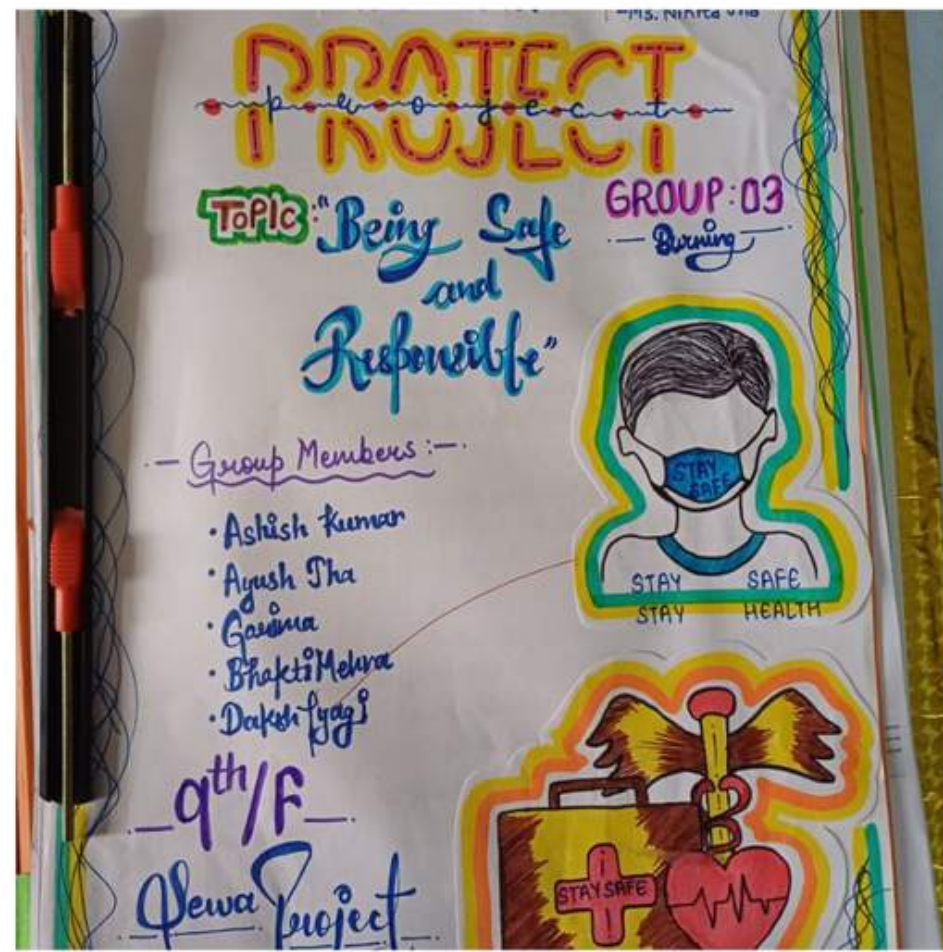 -Ms. Nikita
PROJECT
project
TOPIC: "Being Safe
and
Responsible"
GROUP: 03
- Burning -
- Group Members :-
• Ashish Kumar
• Ayush Jha
• Garima
• Bhakti Mehra
• Daksh Tyagi
9th/F
Sewa Project
STAY
SAFE
STAY SAFE
STAY HEALTH
STAY SAFE